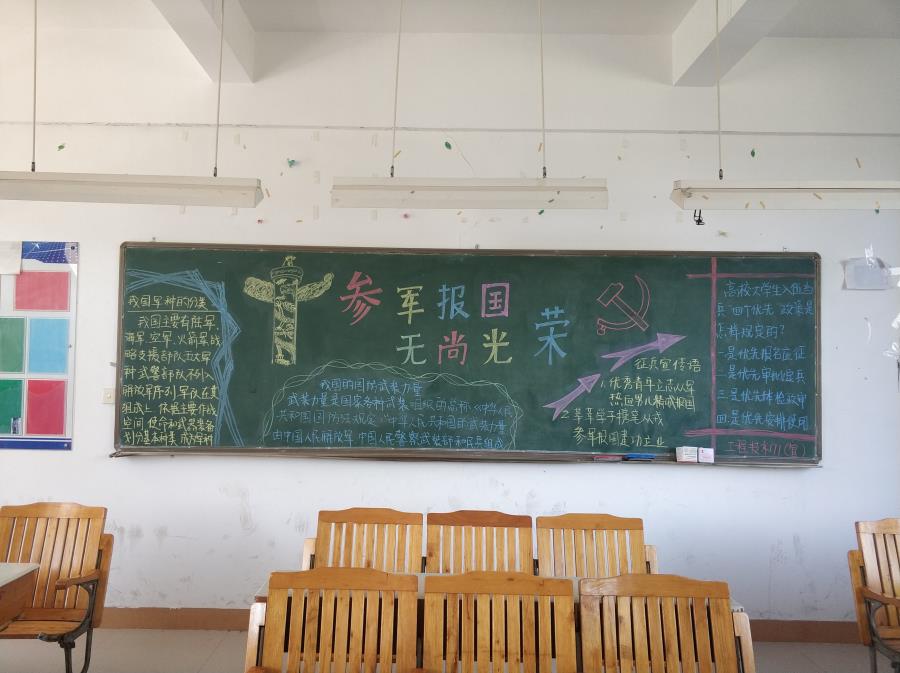 我国军种的分类
我国主要有陆军
海军、空军、火箭军、战
略支援部队五大军
种武警部队不列入
解放军序列军队在其
组成上 依据主要作战
空间 使命和武器装备
划分基本种类 成为军种
参军报国
无尚光荣
我国的国防武装力量
武装力量是国家各种武装组织的总称《中华人民
共和国国防法规定》"中华人民共和国的武装力量
由中国人民解放军 中国人民警察武装部和民兵组成
征兵宣传语
1.优秀青年立志从军
热血男儿精诚报国
2.莘莘学子携笔从戎
参军报国建功立业
高校大学生入伍当
兵"四个优先"政策是
怎样规定的?
一是优先报名应征
二是优先审批定兵
三是优先体检政审
四是优先安排使用